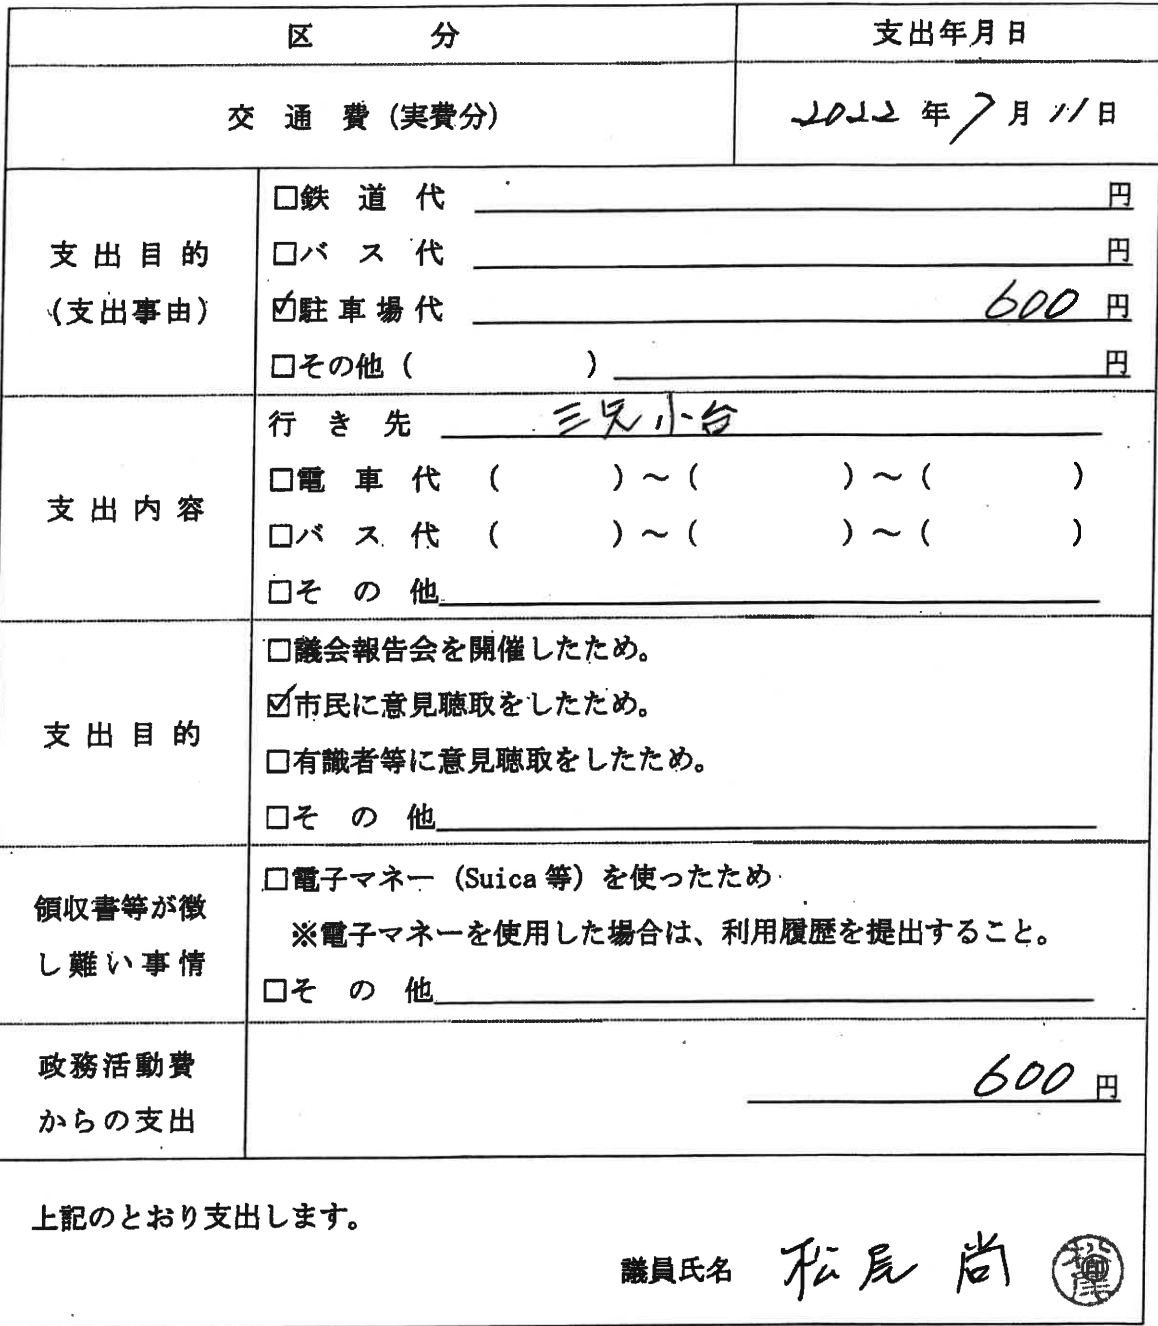 区　分　支出年月日
交通費(実費分)　2022年7月11日
支出目的
(支出事由)
□鉄道代　円
□バス代　円
☑駐車場代　600円
□その他(　　)　円
支出内容
行き先　三咲小台
□電車代　(　　)～(　　)～(　　)
□バス代　(　　)～(　　)～(　　)
□その他
支出目的
□議会報告会を開催したため。
☑市民に意見聴取をしたため。
□有識者等に意見聴取をしたため。
□その他
領収書等が徴
し難い事情
□電子マネー(Suica等)を使ったため
※電子マネーを使用した場合は、利用履歴を提出すること。
□その他
政務活動費
からの支出
600円
上記のとおり支出します。
議員氏名　松尾 尚